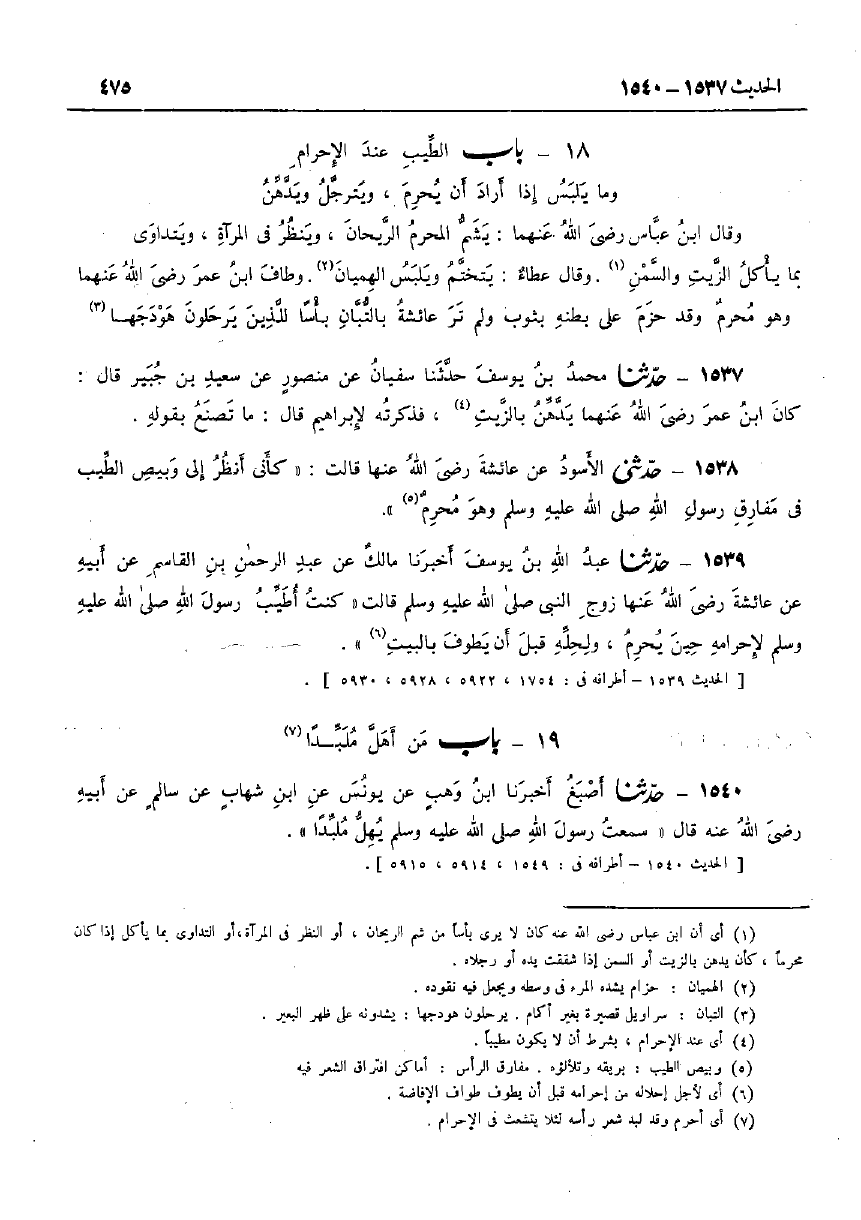 الحديث ١٥٣٧ – ١٥٤٠
٤٧٥
١٨ – باب الطِّيبِ عندَ الإِحرامِ
وما يَلبَسُ إذا أرادَ أن يُحرِمَ ، ويَترجَّلُ ويَدَّهنُ
وقال ابنُ عبَّاسٍ رضىَ اللهُ عنهما : يَشَمُّ المحرمُ الرَّيحانَ ، ويَنظُرُ فى المرآةِ ، ويَتداوَى
بما يأكلُ الزَّيتِ والسَّمْنِ (١) . وقال عطاءٌ : يَتختَّمُ ويَلبَسُ الهِميانَ (٢) . وطافَ ابنُ عمرَ رضىَ اللهُ عَنهما
وهو مُحرمٌ وقد حزَمَ على بطنهِ بثوبٍ ولم تَرَ عائشةُ بالتُّبَّانِ بأسًا للَّذِينَ يَرحَلونَ هَوْدَجَهـا (٣)
١٥٣٧ – حدّثنا محمدُ بنُ يوسفَ حدَّثَنا سفيانُ عن منصورٍ عن سعيدِ بن جُبَيرٍ قال :
كانَ ابنُ عمرَ رضىَ اللهُ عَنهما يَدَّهنُ بالزَّيتِ (٤) ، فذكرتُه لإِبراهيم قال : ما تَصنَعُ بقولهِ .
١٥٣٨ – حدّثنى الأسودُ عن عائشةَ رضىَ اللهُ عنها قالت : « كأنى أنظُرُ إلى وَبيصِ الطِّيب
فى مَفارِقِ رسولِ اللهِ صلى الله عليهِ وسلم وهوَ مُحرِمٌ (٥) ».
١٥٣٩ – حدّثنا عبدُ اللهِ بنُ يوسفَ أخبرَنا مالكٌ عن عبدِ الرحمٰنِ بنِ القاسمِ عن أبيهِ
عن عائشةَ رضىَ اللهُ عَنها زوجِ النبى صلىٰ اللهُ عليهِ وسلم قالت« كنتُ أُطَيِّبُ رسولَ اللهِ صلىٰ الله عليهِ
وسلم لإِحرامهِ حِينَ يُحرِمُ ، ولِحلِّهِ قبلَ أن يَطوفَ بالبيتِ (٦) » .
[ الحديث ١٥٣٩ – أطرافه فى : ١٧٥٤ ، ٥٩٢٢ ، ٥٩٢٨ ، ٥٩٣٠ ] .
١٩ – باب مَن أهَلَّ مُلَبِّـدًا (٧)
١٥٤٠ – حدّثنا أصْبَغُ أخبرَنا ابنُ وَهبٍ عن يونُسَ عنِ ابنِ شهابٍ عن سالمٍ عن أبيهِ
رضىَ اللهُ عنه قال « سمعتُ رسولَ اللهِ صلى الله عليه وسلم يُهِلُّ مُلبِّدًا » .
[ الحديث ١٥٤٠ – أطرافه فى : ١٥٤٩ ، ٥٩١٤ ، ٥٩١٥ ] .
(١) أى أن ابن عباس رضى الله عنه كان لا يرى بأساً من شم الريحان ، أو النظر فى المرآة،أو التداوى بما يأكل إذا كان
محرماً ، كأن يدهن بالزيت أو السمن إذا شققت يده أو رجلاه .
(٢) الهميان : حزام يشده المرء فى وسطه ويجعل فيه نقوده .
(٣) التبان : سراويل قصيرة بغير أكمام . يرحلون هودجها : يشدونه على ظهر البعير .
(٤) أى عند الإحرام ، بشرط أن لا يكون مطيباً .
(٥) وبيص الطيب : بريقه وتلألؤه . مفارق الرأس : أماكن افتراق الشعر فيه
(٦) أى لأجل إحلاله من إحرامه قبل أن يطوف طواف الإفاضة .
(٧) أى أحرم وقد لبد شعر رأسه لئلا يتشعث فى الإحرام .